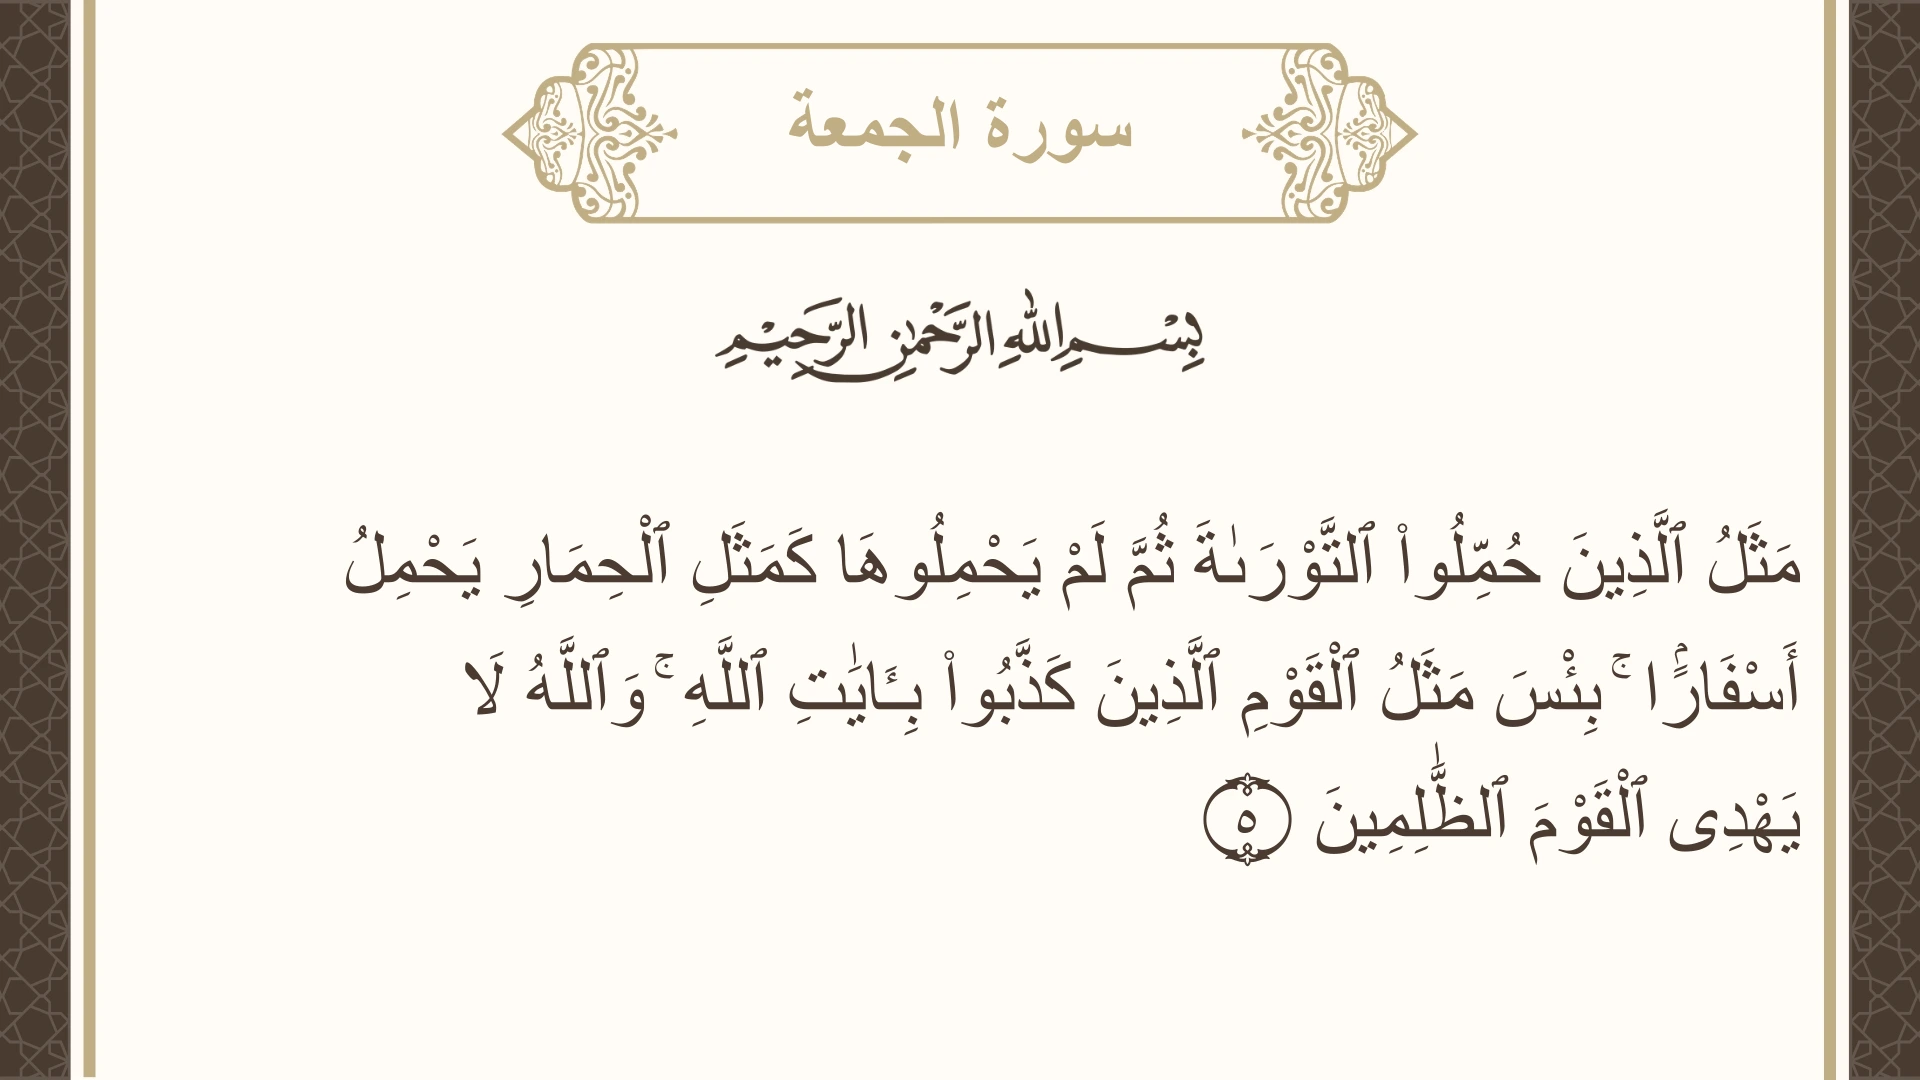 سورة الجمعة
بِسْمِ اللهِ الرَّحْمٰنِ الرَّحِيْمِ
مَثَلُ ٱلَّذِينَ حُمِّلُوا۟ ٱلتَّوْرَىٰةَ ثُمَّ لَمْ يَحْمِلُوهَا كَمَثَلِ ٱلْحِمَارِ يَحْمِلُ
أَسْفَارًۢا ۚ بِئْسَ مَثَلُ ٱلْقَوْمِ ٱلَّذِينَ كَذَّبُوا۟ بِـَٔايَـٰتِ ٱللَّهِ ۚ وَٱللَّهُ لَا
يَهْدِى ٱلْقَوْمَ ٱلظَّـٰلِمِينَ ٥